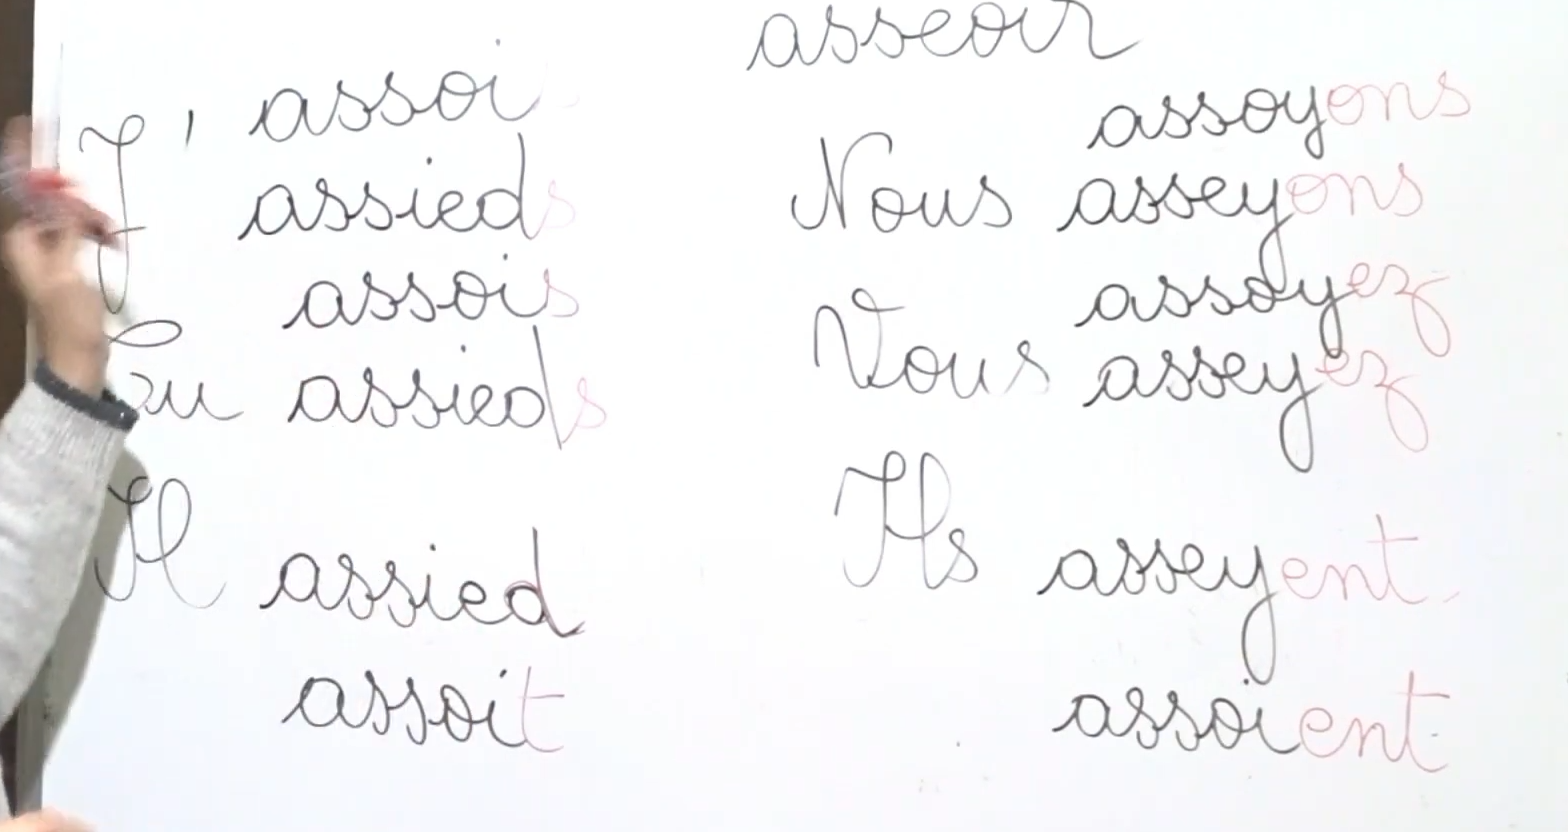 asseoir
J' assois
assieds
assois
Tu assieds
Il assied
assoit
assoyons
Nous asseyons
assoyez
Vous asseyez
Ils asseyent
assoient